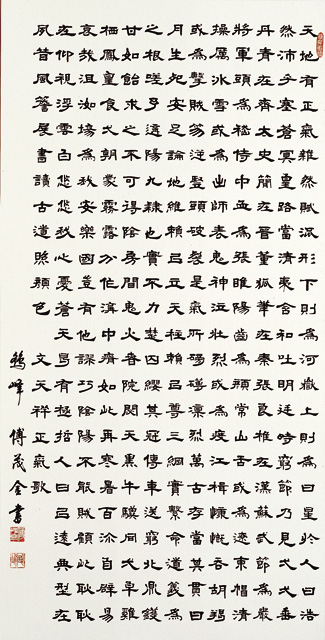 天地有正氣雜然賦流形下則為河嶽上則為日星於人曰浩
然沛乎塞蒼冥皇路當清夷含和吐明廷時窮節乃見弌弌垂
丹青在齊太史簡在晉董狐筆在秦張良椎在漢蘇武節為嚴
將軍頭為嵇侍中血為張睢陽齒為顏常山舌或為遼東帽清
操厲冰雪或為出師表鬼神泣壯烈或為渡江楫慷慨吞胡羯
或為擊賊笏逆豎頭破裂是氣所磅礡凜烈萬古存當其貫日
月生死安足論地維賴以立天柱賴以尊三綱實繫命道義為
之根嗟予遘陽九隸也實不力楚囚纓其冠傳車送窮北鼎鑊
甘如飴求之不可得陰房闃鬼火春院閟天黑牛驥同弌皁雞
棲鳳皇食弌朝蒙霧露分作溝中瘠如此再寒暑百沴自辟易
哀哉沮洳場為我安樂國豈有他謬巧陰陽不能賊顧此耿耿
在仰視浮雲白悠悠我心憂蒼天曷有極哲人日已遠典型在
夙昔風簷展書讀古道照顏色 文天祥正氣歌
峰 傅茂 書